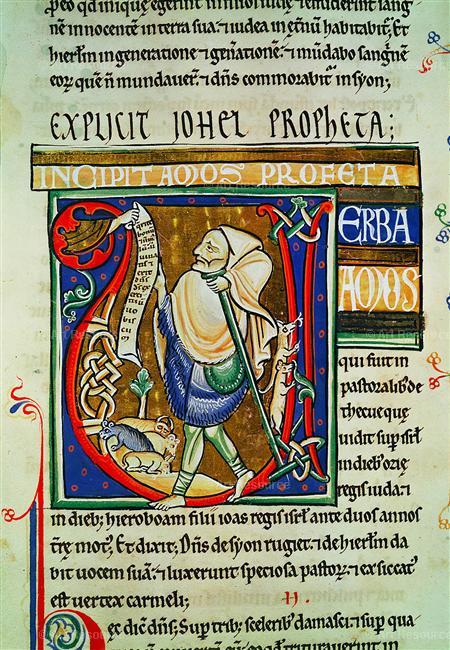 peo qđ inique egerint in filios iude; & effuderint sang
nē innocentē in terra sua; ⁊ iudea in etnū habitabit̄, Et
hierl̄m in generatione ⁊ gn̄atione; ⁊ mūdabo sangnē
eoꝝ quē n̄ mundauerā; ⁊ dn̄s commorabit̄ in syon;
EXPLICIT IOHEL PROPHETA;
INCIPIT AMOS PROFETA
bonū
uobis
cū
ERBA
AMOS
qui fuit in
pastoralib; de
thecue que
uidit sup isrl̄
in dieb; ozie
regis iuda; ⁊
in dieb; hieroboam filii ioas regis isrl̄ ante duos annos
t̄rę mot᷒, Et dixit; Dn̄s de syon rugiet; ⁊ de hierl̄m da
bit uocem suā; ⁊ luxerunt speciosa pastoꝝ; ⁊ exsiccat᷒
est uertex carmeli; II.
ec dic̄ dn̄s; Sup trib; scelerib; damasci; ⁊ sup qua